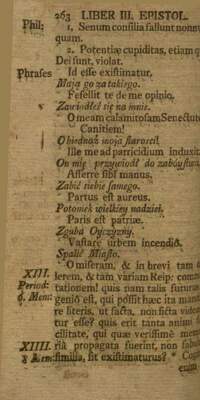 263 LIBER III. EPISTOL.
Phil; 1. Senum consilia fallunt nonn
quam.
2. Potentiæ cupiditas, etiam q
Dei sunt, violat.
Phrases Id esse existimatur.
Maja go za takiego.
Fefellit te de me opinio.
Zawiodłeś się na mnie.
O meam calamitosam Senectute
Canitiem!
O biednaż moja starości!
Ille me ad parricidium induxit
On mię przywiodł do zaboystwa
Afferre sibi manus.
Zabić siebie samego.
Partus est aureus.
Potomek wielkiey nadziei.
Paris est patriæ.
Zguba Oyczyzny.
Vastare urbem incendiô.
Spalić Miasto.
XIII. O miseram, & in brevi tam
Period: lerem, & tam variam Reip: comm
4. Mem: tationem! quis nam talis futurus
geniô est, qui possit hæc ita mand
re literis, ut facta, non ficta video
tur esse? quis erit tanta animi
cilitate, qui quæ verissimè mem
XIIII. riâ propagata fuerint, non fabu
similia, sit existimaturus? Cog
enim